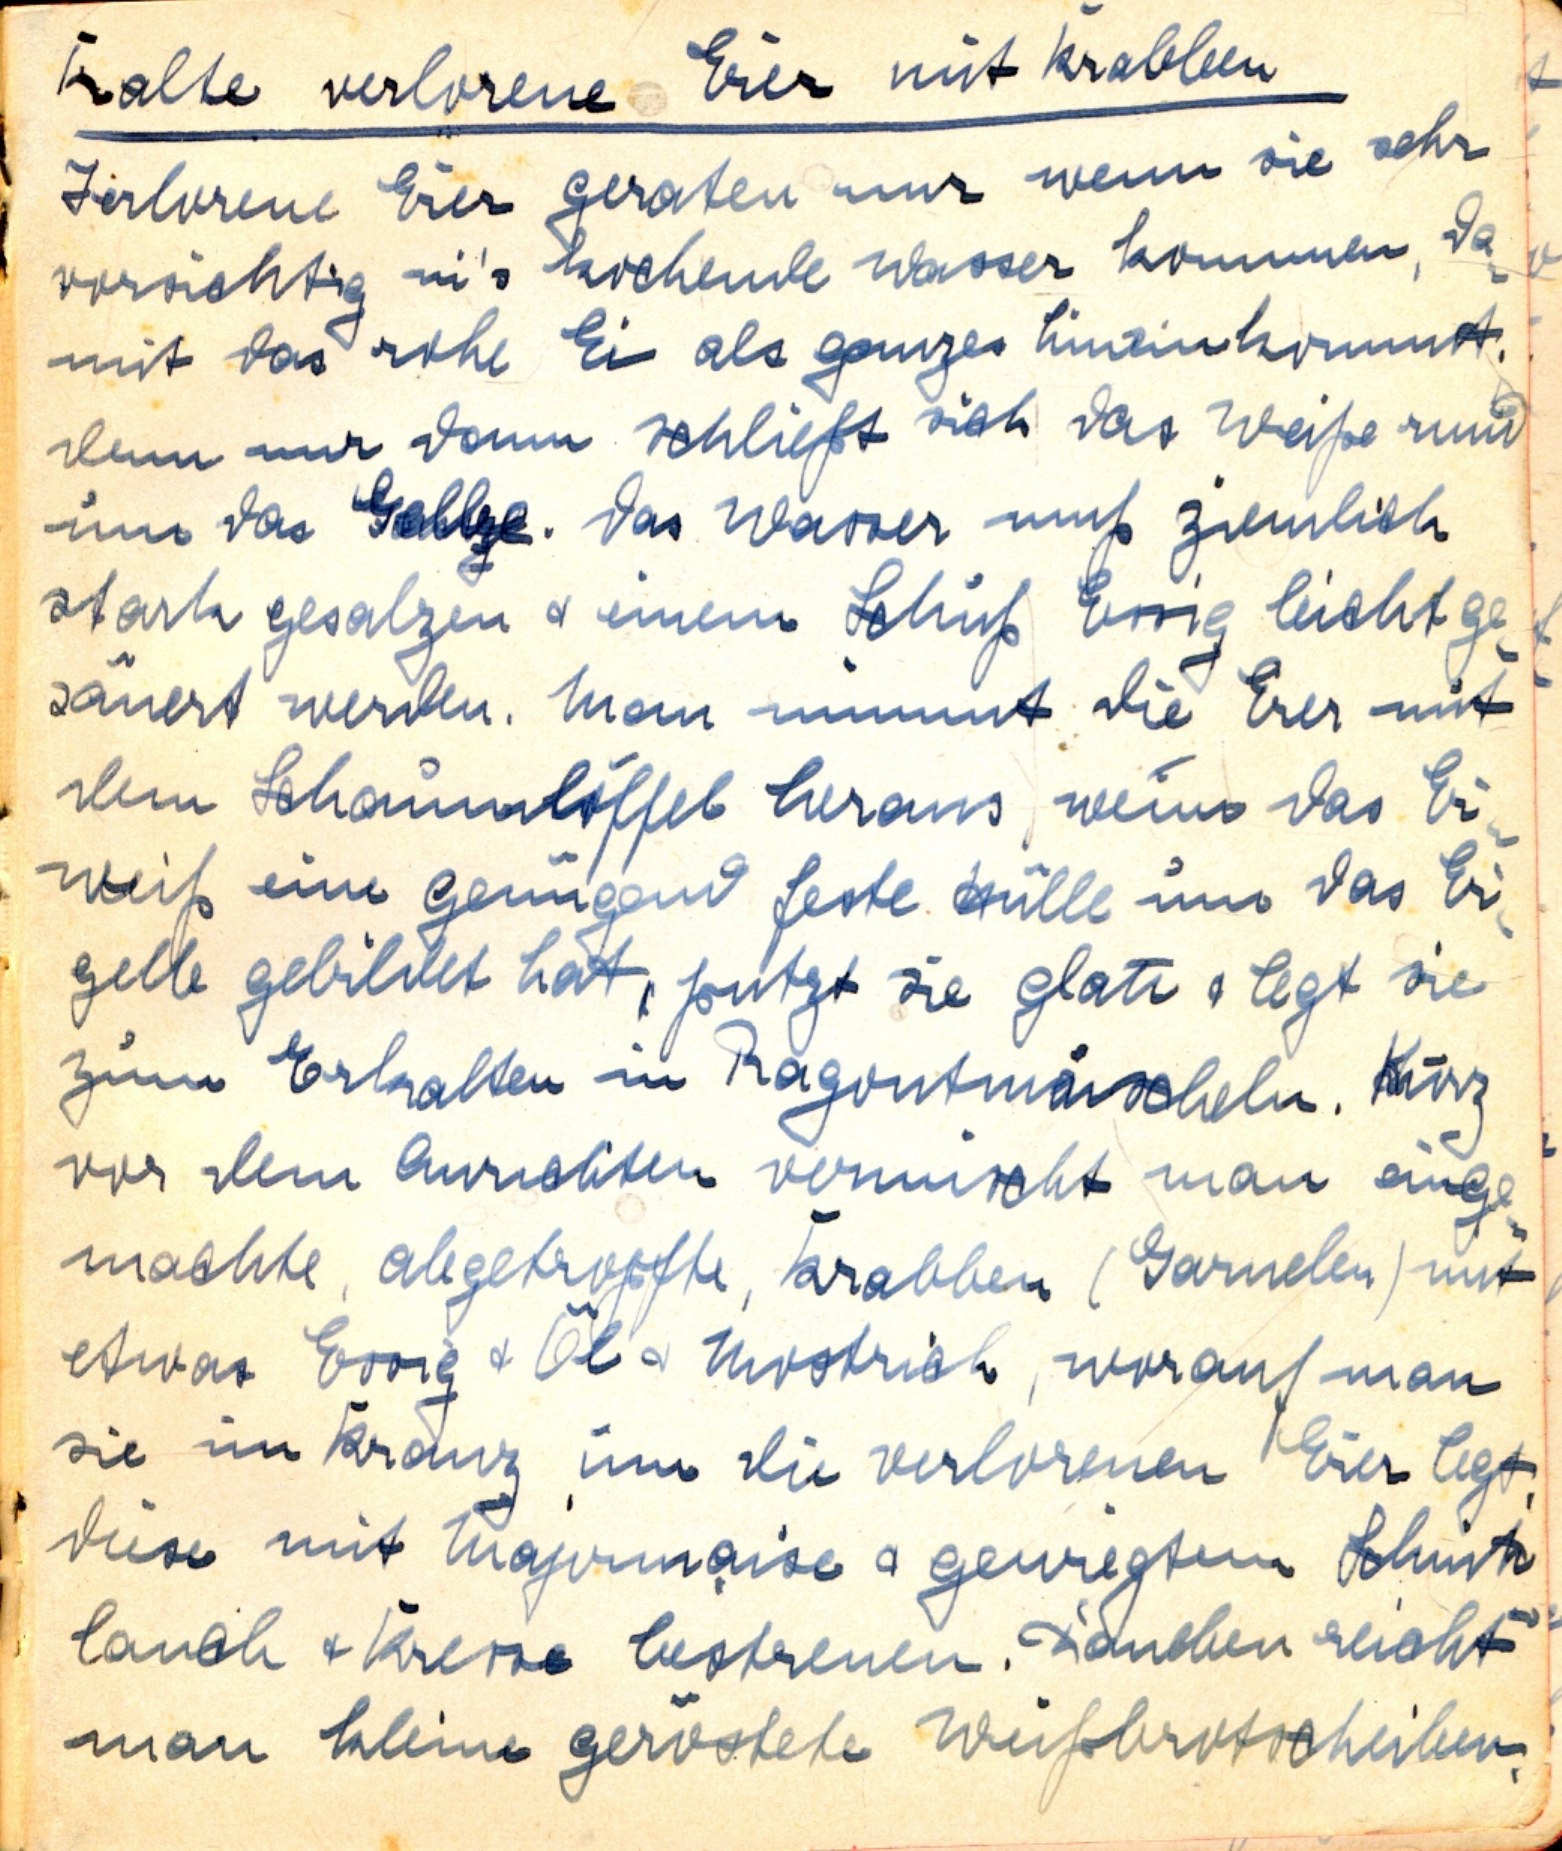 Kalte verlorene Eier mit Krabben
Verlorene Eier geraten nur wenn sie sehr
vorsichtig in's kochende Wasser kommen, da-
mit das rohe Ei als ganzes hineinkommt.
denn nur dann schließt sich das Weiße rund
um das Gelbe. Das Wasser muß ziemlich
stark gesalzen & einem Schuß Essig leicht ge-
säuert werden. Man nimmt die Eier mit
dem Schaumlöffel heraus, wenn das Ei-
weiß eine genügend feste Hülle um das Ei-
gelb gebildet hat, putzt sie glatt & legt sie
zum Erkalten in Ragoutmuscheln. Kurz
vor dem Anrichten vermischt man einge-
machte, abgetropfte, Krabben (Garnelen) mit
etwas Essig & Öl & Mostrich, worauf man
sie im Kranz um die verlorenen Eier legt,
diese mit Majonnaise & gewiegtem Schnitt
lauch & Kresse bestreuen. Daneben reicht
man kleine geröstete Weißbrotscheiben.